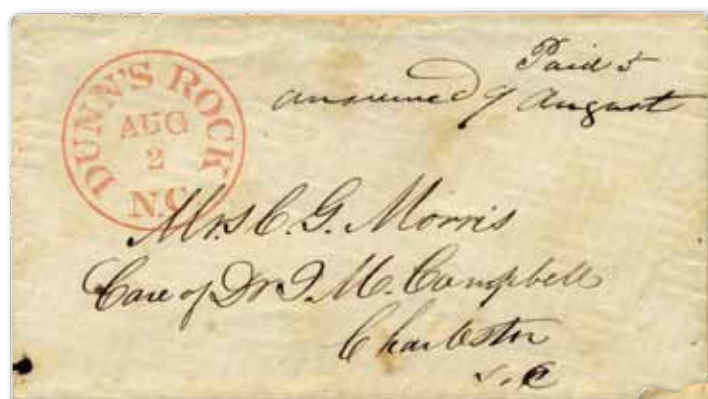 DUNN'S ROCK
AUG
2
N.C.
Paid 5
answered 9 August
Mrs C. G. Morris
Care of Dr I. M. Campbell
Charleston
S. C